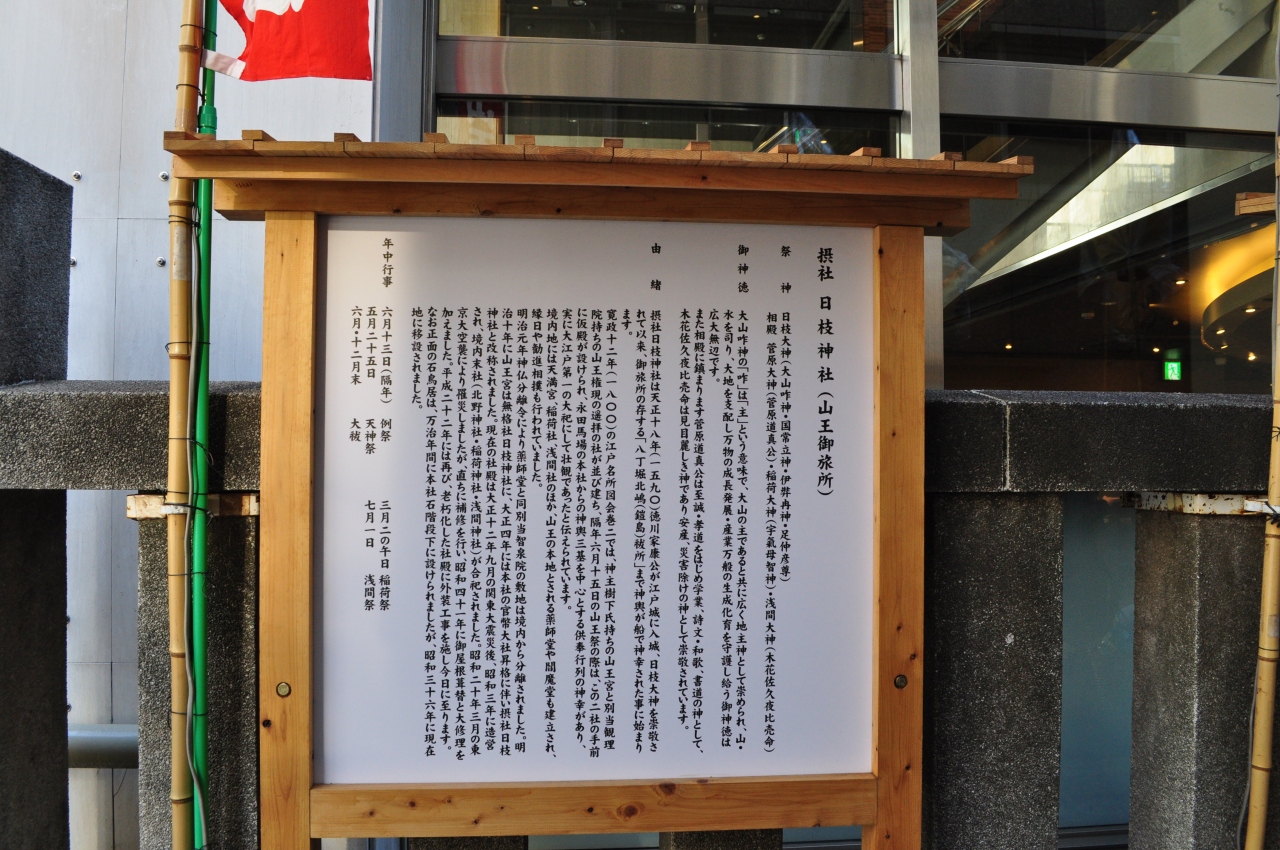 摂社 日枝神社（山王御旅所）
祭神 日枝大神（大山咋神・国常立神・伊弉冉神・足仲彦尊）
相殿 菅原大神（菅原道真公）・稲荷大神（宇氣母智神）・浅間大神（木花佐久夜比売命）
御神徳 大山咋神の「咋」は「主」という意味で、大山の主であると共に広く地主神として崇められ、山・
水を司り、大地を支配し万物の成長発展・産業万般の生成化育を守護し給う御神徳は
広大無辺です。
また相殿に鎮まります菅原道真公は至誠・孝道をはじめ学業、詩文・和歌・書道の神として、
木花佐久夜比売命は見目麗しき神であり、安産、災害除けの神として崇敬されています。
由緒 摂社日枝神社は天正十八年（一五九〇）徳川家康公が江戸城に入城、日枝大神を崇敬さ
れて以来、御旅所の存する「八丁堀北嶋（鎧島）祓所」まで神輿が船で神幸された事に始まり
ます。
寛政十二年（一八〇〇）の江戸名所図会巻二では、神主樹下氏持ちの山王宮と別当観理
院持ちの山王権現の遥拝の社が並び建ち、隔年六月十五日の山王祭の際は、この二社の手前
に仮殿が設けられ、永田馬場の本社からの神輿三基を中心とする供奉行列の神幸があり、
実に大江戸第一の大祀にして壮観であったと伝えられています。
境内地には天満宮、稲荷社、浅間社のほか、山王の本地とされる薬師堂や閻魔堂も建立され、
縁日や勧進相撲も行われていました。
明治元年神仏分離令により薬師堂と同別当智泉院の敷地は境内から分離されました。明
治十年に山王宮は無格社日枝神社に、大正四年には本社の官幣大社昇格に伴い摂社日枝
神社と改称されました。現在の社殿は大正十二年九月の関東大震災後、昭和三年に造営
され、境内末社（北野神社・稲荷神社・浅間神社）が合祀されました。昭和二十年三月の東
京大空襲により罹災しましたが、直ちに補修を行い、昭和四十一年に御屋根葺替と大修理を
加えました。平成二十二年には再び、老朽化した社殿に外装工事を施し今日に至ります。
なお正面の石鳥居は、万治年間に本社石階段下に設けられましたが、昭和三十六年に現在
地に移設されました。
年中行事 六月十三日（隔年） 例祭 三月二の午日 稲荷祭
五月二十五日 天神祭 七月一日 浅間祭
六月・十二月末 大祓